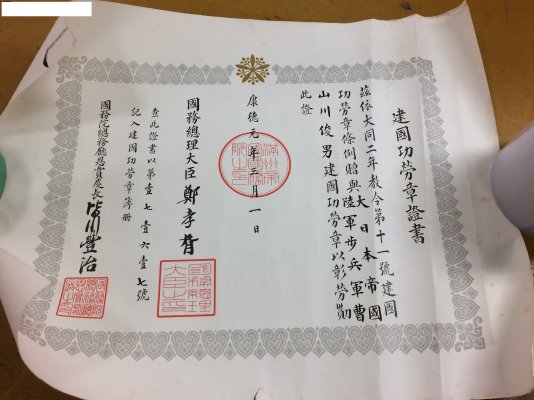 建國功勞章證書
茲依大同二年敎令第十一號建國
功勞章條例贈與大日本帝國
陸軍步兵軍曹
山川俊男建國功勞章以彰勞勩
此證
康德元年三月一日
國務總理大臣 鄭孝胥
查此證書以第壹七壹六壹七號
記入建國功勞章簿册
國務院總務廳恩賞處長 皆川豐治